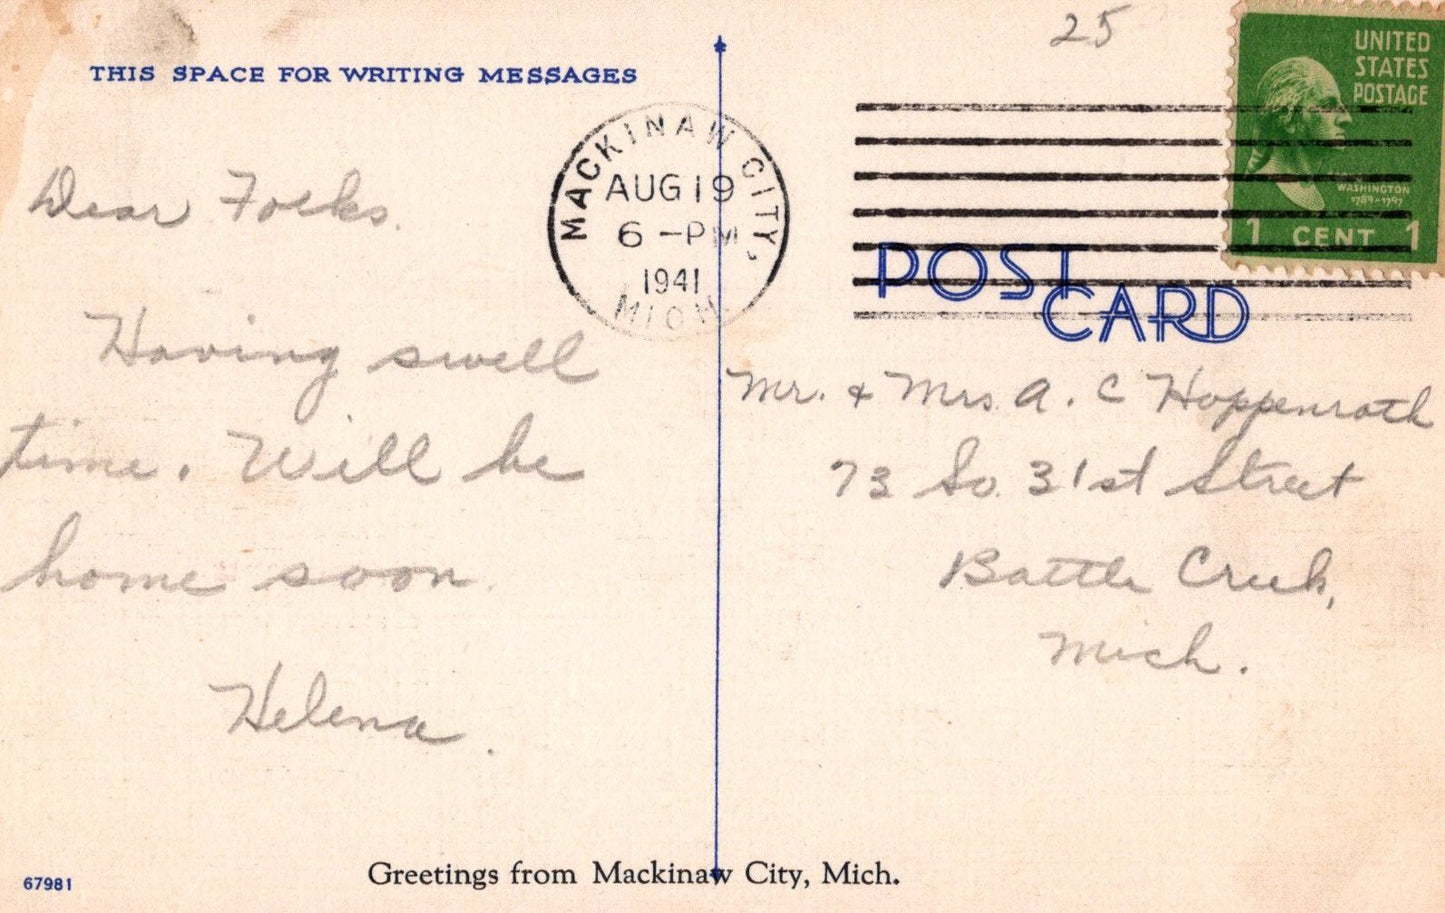 25
THIS SPACE FOR WRITING MESSAGES
UNITED
STATES
POSTAGE
WASHINGTON
1789-1797
1 CENT 1
MACKINAW CITY,
AUG 19
6 - PM
1941
MICH.
POST
CARD
Dear Folks.
Having swell
time. Will be
home soon.
Helena.
Mr. & Mrs. A. C Hoppenrath
73 So. 31st Street
Battle Creek,
Mich.
67981
Greetings from Mackinaw City, Mich.